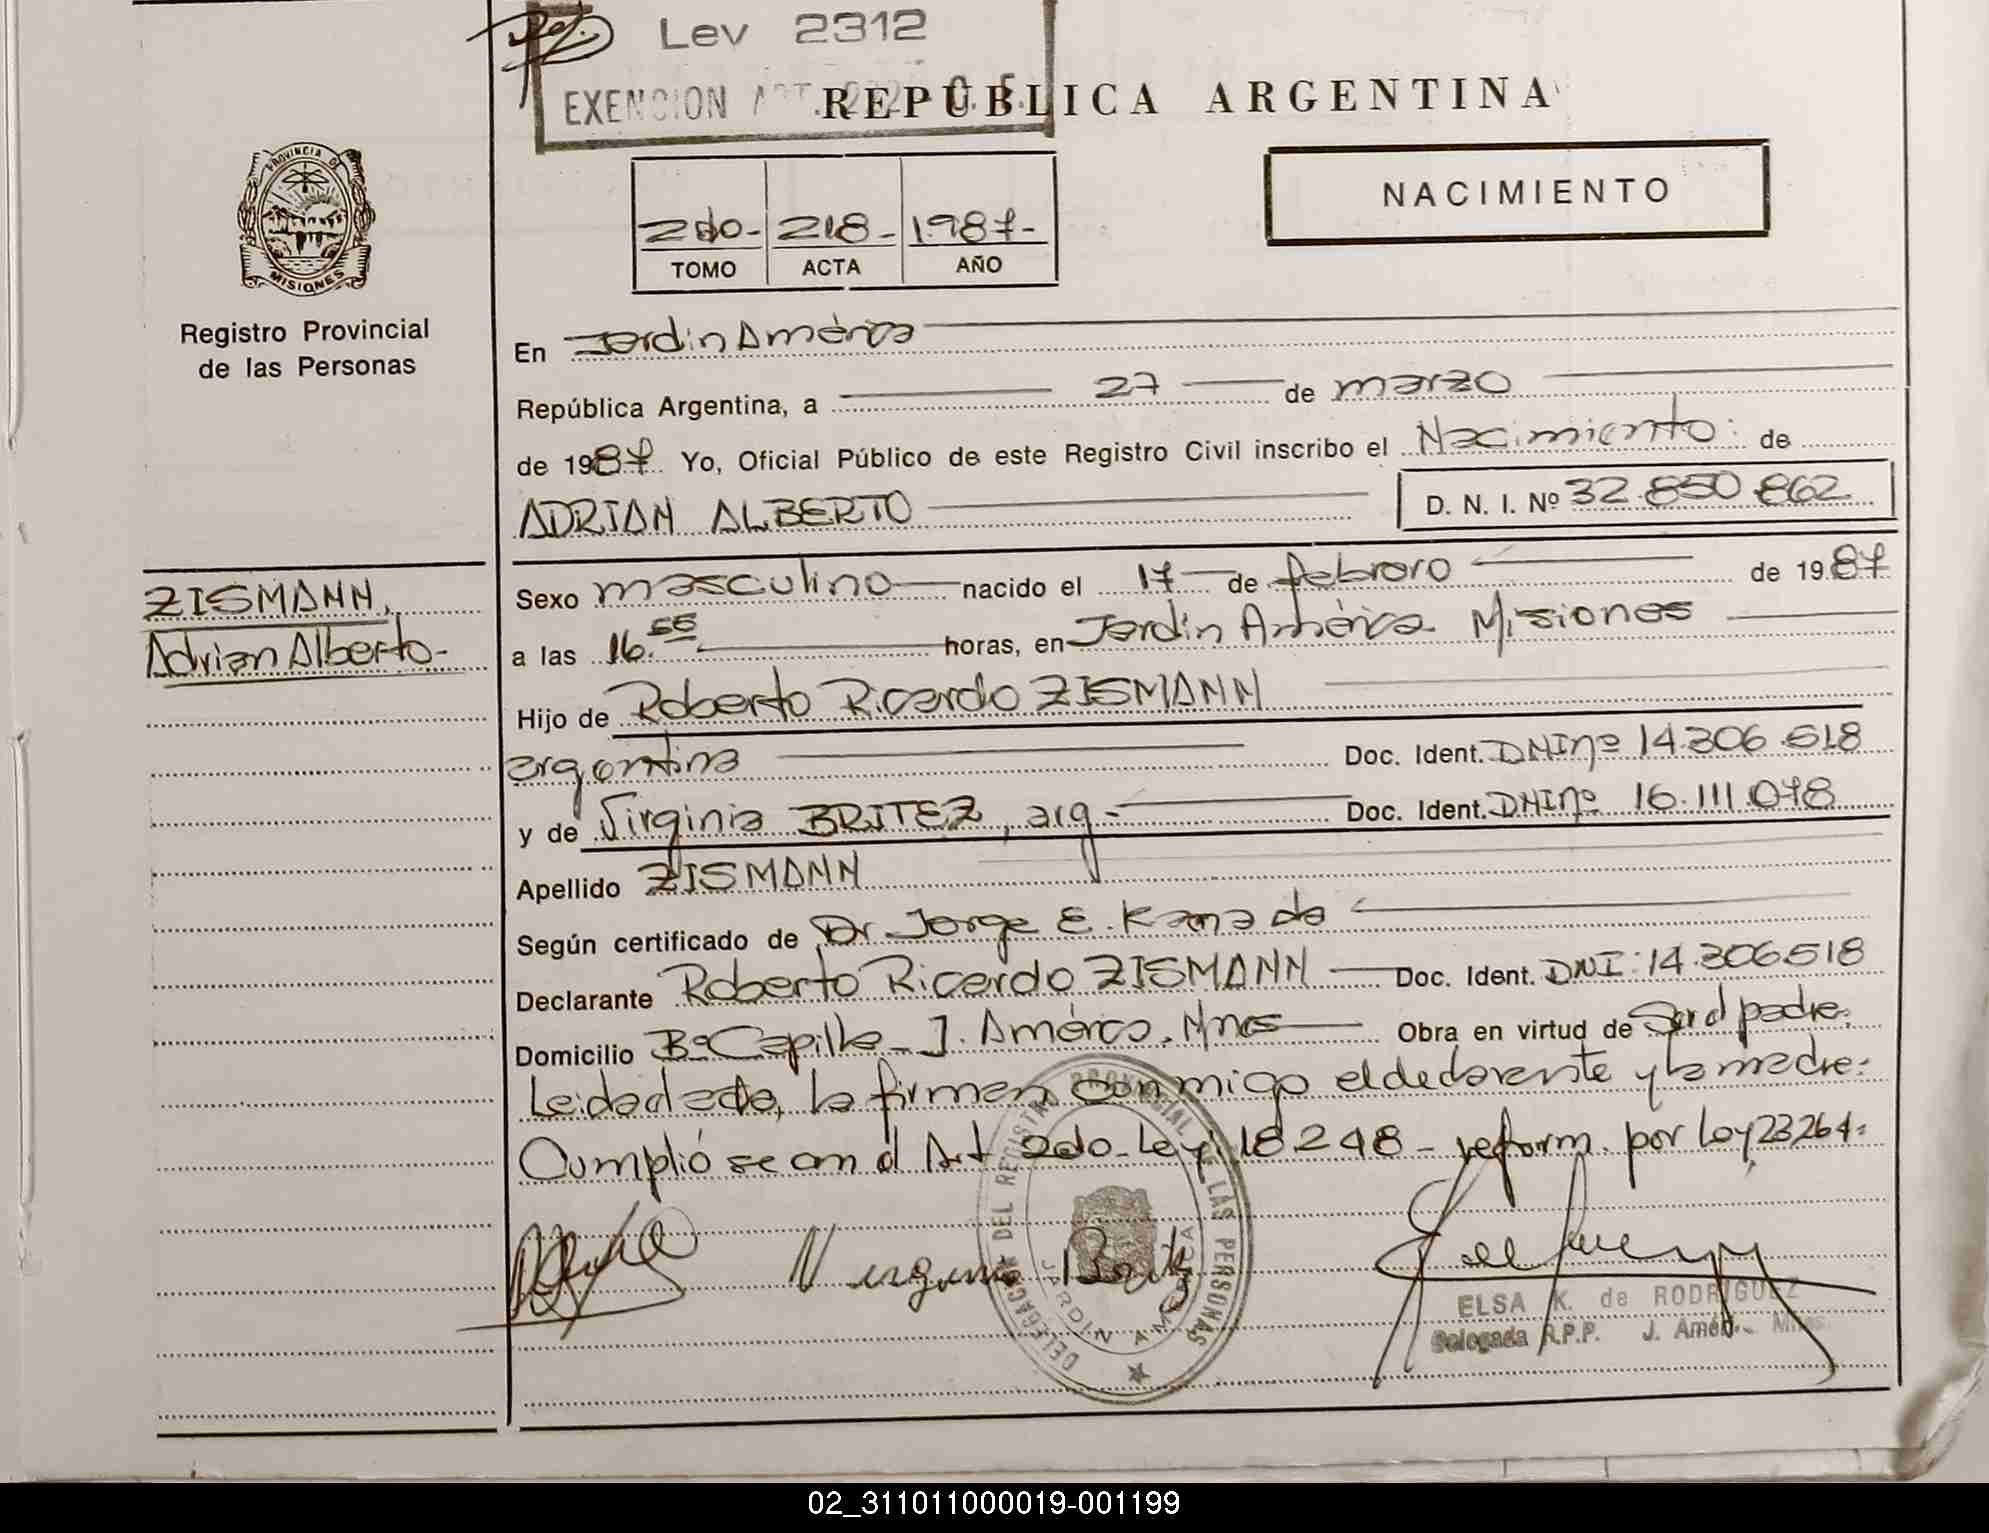 Ley 2312
EXENCION ART.
REPUBLICA ARGENTINA
NACIMIENTO
2do- 218- 1987-
TOMO ACTA AÑO
PROVINCIA DE
MISIONES
Registro Provincial
de las Personas
En Jardin América
República Argentina, a 27 de marzo
de 1987 Yo, Oficial Público de este Registro Civil inscribo el Nacimiento: de
ADRIAN ALBERTO D. N. I. Nº 32.850.862
ZISMANN,
Adrian Alberto-
Sexo masculino nacido el 17 de febrero de 1987
a las 16.55 horas, en Jardin América Misiones
Hijo de Roberto Ricardo ZISMANN
argentina Doc. Ident. DNI nº 14.306.518
y de Virginia BRITEZ, arg- Doc. Ident. DNI nº 16.111.078
Apellido ZISMANN
Según certificado de Dr Jorge E. Kanada
Declarante Roberto Ricardo ZISMANN Doc. Ident. DNI: 14.306.518
Domicilio Bº Capilla - J. América, Mnes Obra en virtud de Ser el padre.
Leida el acta, la firman conmigo el declarante y la madre:
Cumplió se con el Art 2do- Ley: 18248 - reform. por Ley 23264:
DELEGACION DEL REGISTRO PROVINCIAL DE LAS PERSONAS
JARDIN AMERICA
Virginia Britez
ELSA K. de RODRIGUEZ
Delegada R.P.P. J. Amér. Mnes.
02_311011000019-001199